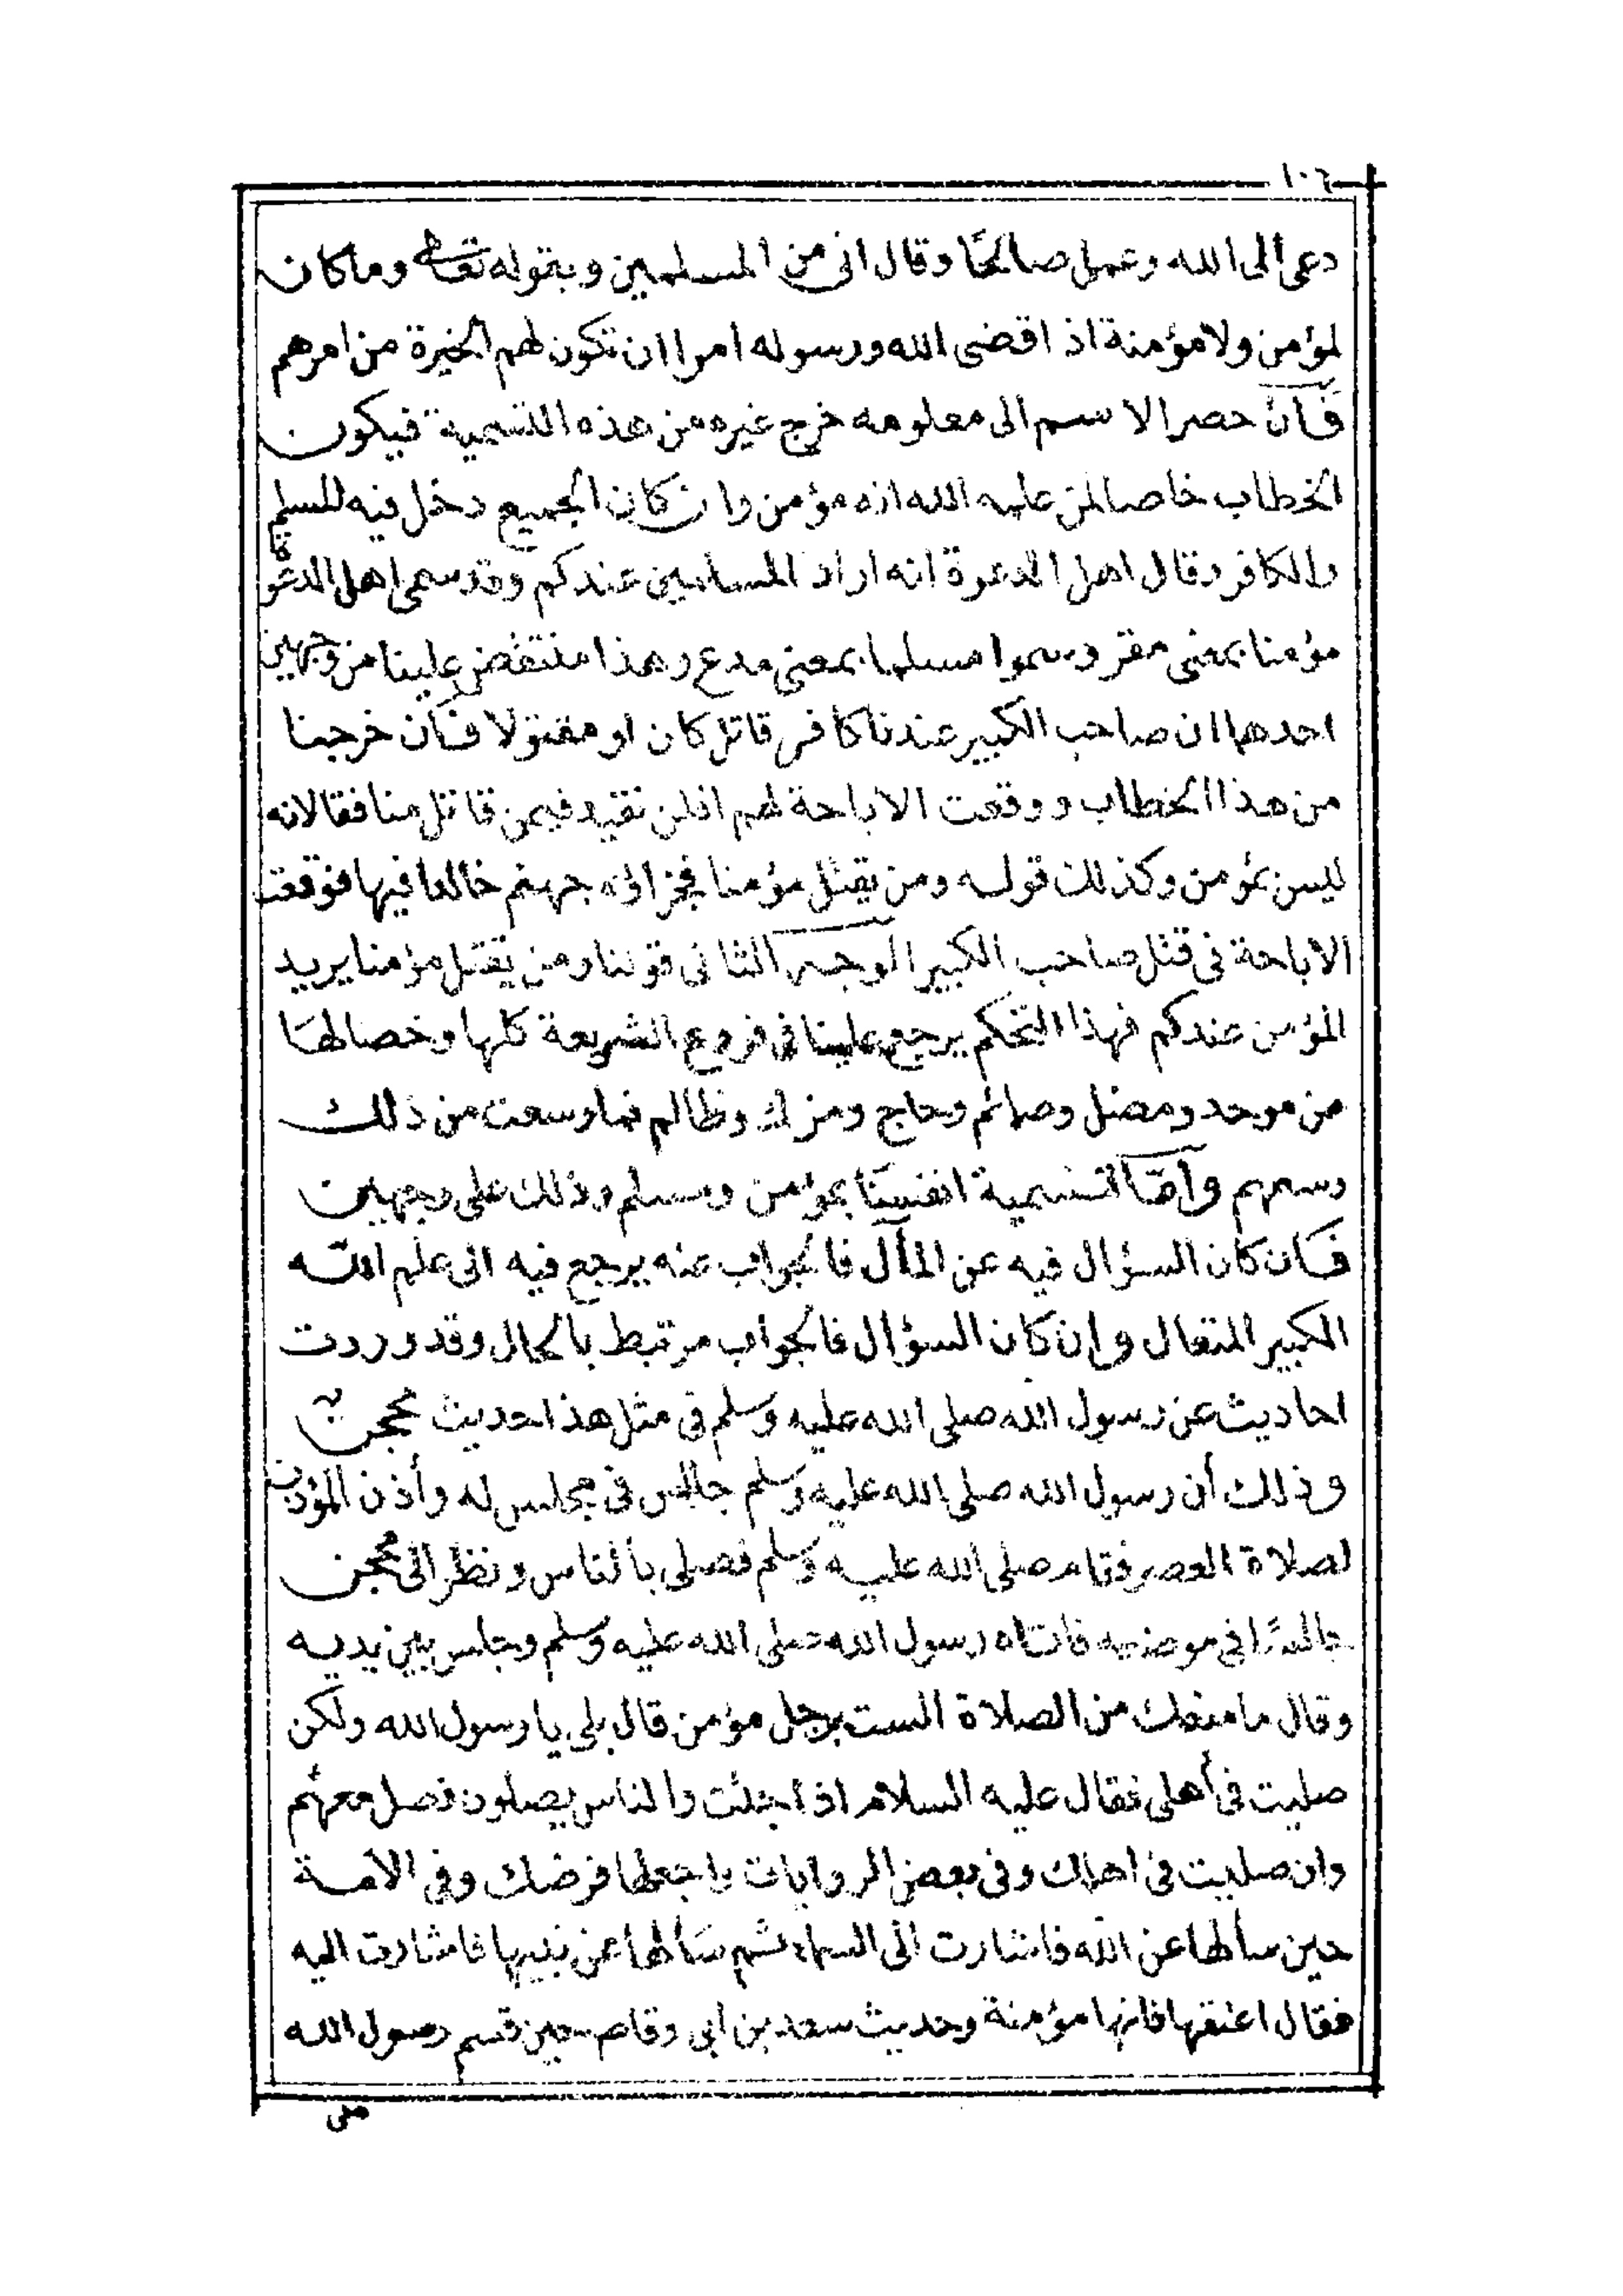 ١٠٦
دعى الى الله وعمل صالحًا وقال انى من المسلمين وبقوله تعالى وما كان
لمؤمن ولا مؤمنة اذا قضى الله ورسوله امرا ان تكون لهم الخيرة من امرهم
فَان حصر الاسم الى معلومه خرج غيره من هذه التسمية فيكون
الخطاب خاصا لمن عليه الله انه مؤمن وان كان الجميع دخل فيه المسلم
والكافر وقال اهل الدعوة انه اراد المسلمين عندكم وقد سمى اهل الدعوة
مؤمنا بمعنى مقر وسموا مسلما بمعنى مدع وهذا منتقض علينا من وجهين
احدهما ان صاحب الكبير عندنا كافر قاتل كان او مقتولا فَان خرجنا
من هذا الخطاب ووقعت الاباحة لهم افلن نقيد فيمن قاتل منا فقال انه
ليس بمؤمن وكذلك قوله ومن يقتل مؤمنا فجزاؤه جهنم خالدا فيها فوقعت
الاباحة فى قتل صاحب الكبير الوجه الثانى قولنا ومن يقتل مؤمنا يريد
المؤمن عندكم فهذا التحكم يرجع علينا فى فروع الشريعة كلها وخصالهَا
من موحد ومصل وصائم وحاج ومزك وظالم فما وسعت من ذلك
وسعهم وأمّا تسمية انفسنَا بمؤمن ومسلم وذلك على وجهين
فَان كان السؤال فيه عن المآل فالجواب عنه يرجع فيه الى علم الله
الكبير المتعال وان كان السؤال فالجواب مرتبط بالحال وقد وردت
احاديث عن رسول الله صلى الله عليه وسلم فى مثل هذا حديث محجن
وذلك أن رسول الله صلى الله عليه وسلم جالس فى مجلس له وأذن المؤذن
لصلاة العصر فقام صلى الله عليه وسلم فصلى بالناس ونظر الى محجن
جالسًا فى موضعه فاتاه رسول الله صلى الله عليه وسلم وجلس بين يديه
وقال ما منعك من الصلاة الست برجل مؤمن قال بلى يا رسول الله ولكن
صليت فى أهلى فقال عليه السلام اذا جئت والناس يصلون فصل معهم
وان صليت فى اهلك وفى بعض الروايات واجعلها فرضك وفى الامة
حين سألها عن الله فاشارت الى السماء ثم سَألها عن نبيها فاشارت اليه
فقال اعتقها فانها مؤمنة وحديث سعد بن ابى وقاص حين قسم رسول الله
صلى